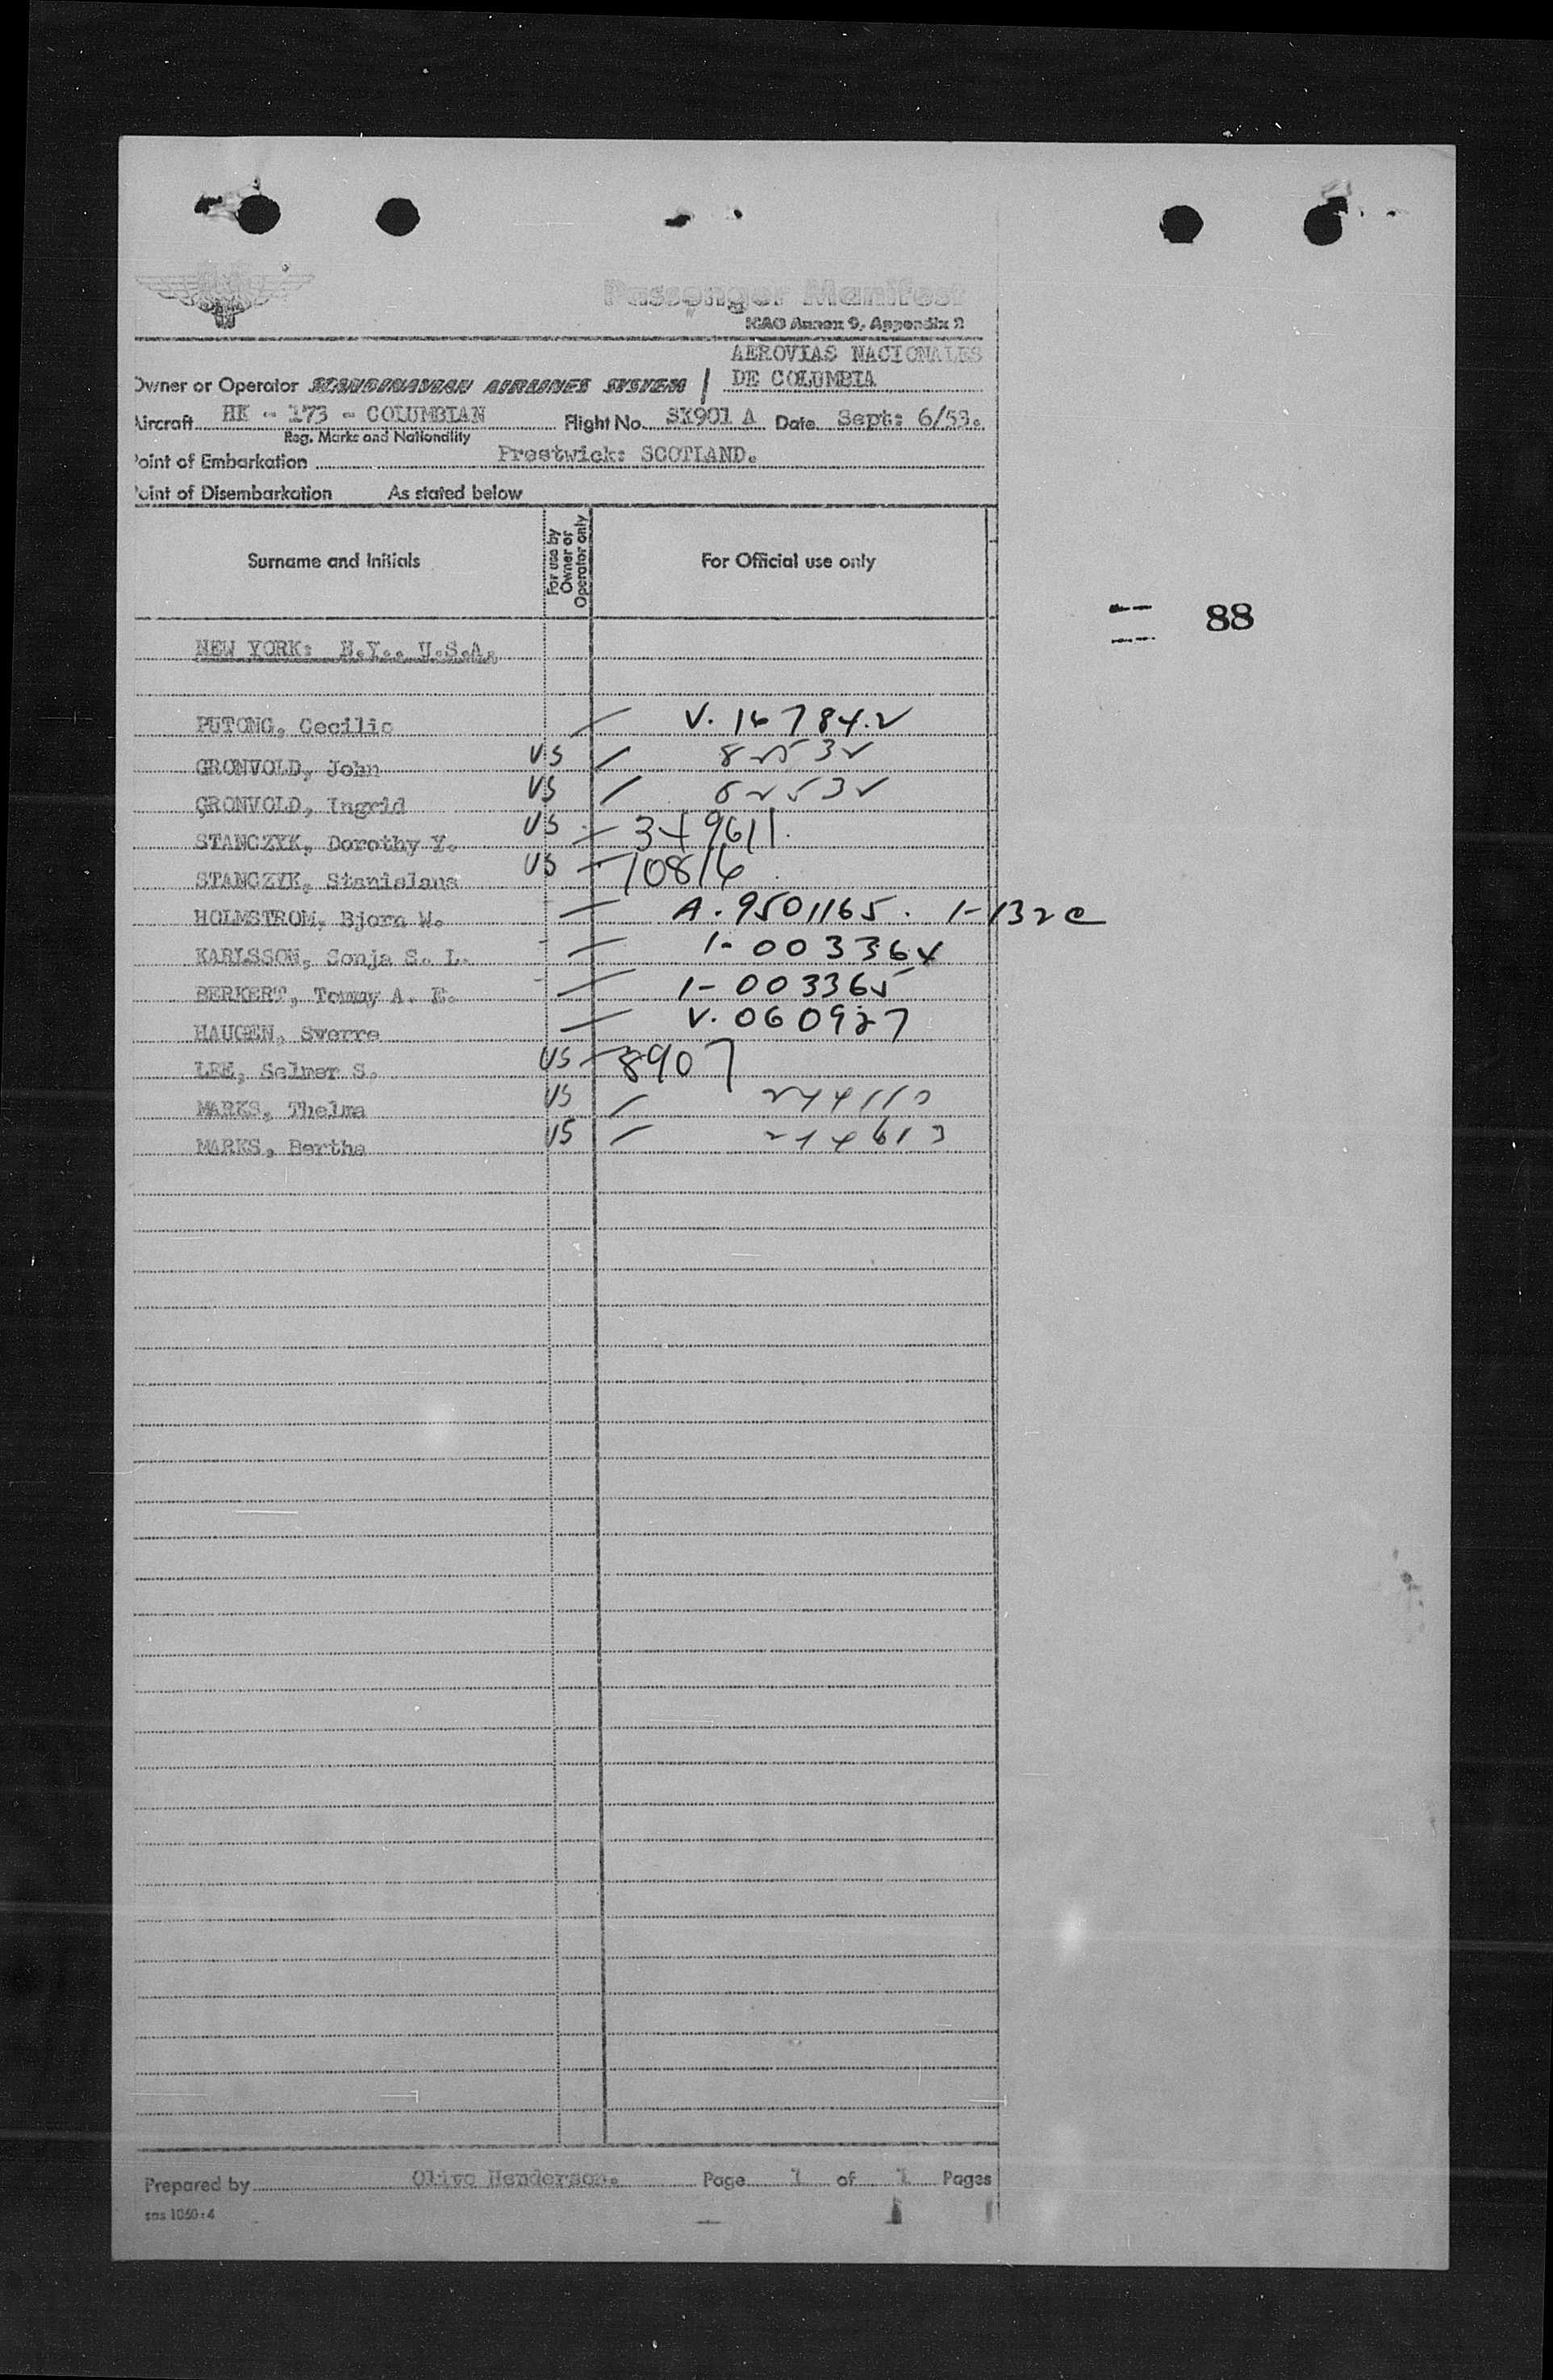 Passenger Manifest
ICAO Annex 9, Appendix 2
AEROVIAS NACIONALES
Owner or Operator SCANDINAVIAN AIRLINES SYSTEM / DE COLUMBIA
Aircraft HK - 173 - COLUMBIAN Flight No. SK901 A Date Sept: 6/53.
Reg. Marks and Nationality
Point of Embarkation Prestwick: SCOTLAND.
Point of Disembarkation As stated below
Surname and Initials For use by Owner or Operator only For Official use only
88
NEW YORK: N.Y., U.S.A.
PUTONG, Cecilio V.
GRONVOLD, John US 82532
GRONVOLD, Ingrid US 82532
STANCZYK, Dorothy Y. US 349611
STANCZYK, Stanislaus US 10816
HOLMSTROM, Bjorn W. A.9501165. 1-132c
KARLSSON, Sonja S. L. 1-003364
BERKERT, Tommy A. E. 1-003365
HAUGEN, Sverre V.060927
LEE, Selmer S. US 8907
MARKS, Thelma US
MARKS, Bertha US
Prepared by Olive Henderson. Page 1 of 1 Pages
sas 1060:4